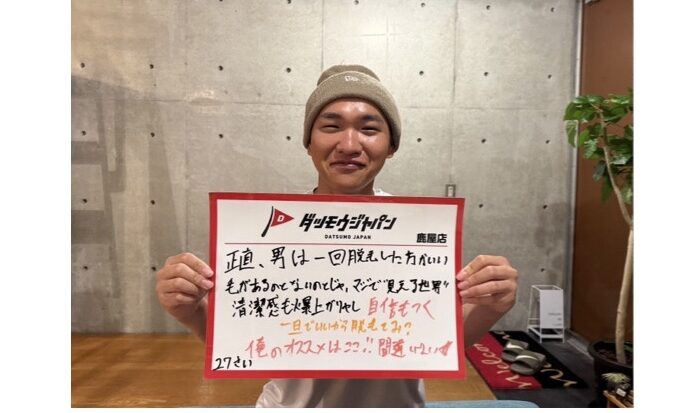 D
ダツモウジャパン
DATSUMO JAPAN
鹿屋店
正直、男は一回脱毛した方がいい
毛があるのとないのとじゃ、マジで"見える世界"
清潔感も爆上がりやし 自信もつく
一旦でいいから脱毛してみ?
俺のオススメはココ!! 間違いない
27さい
Welcome